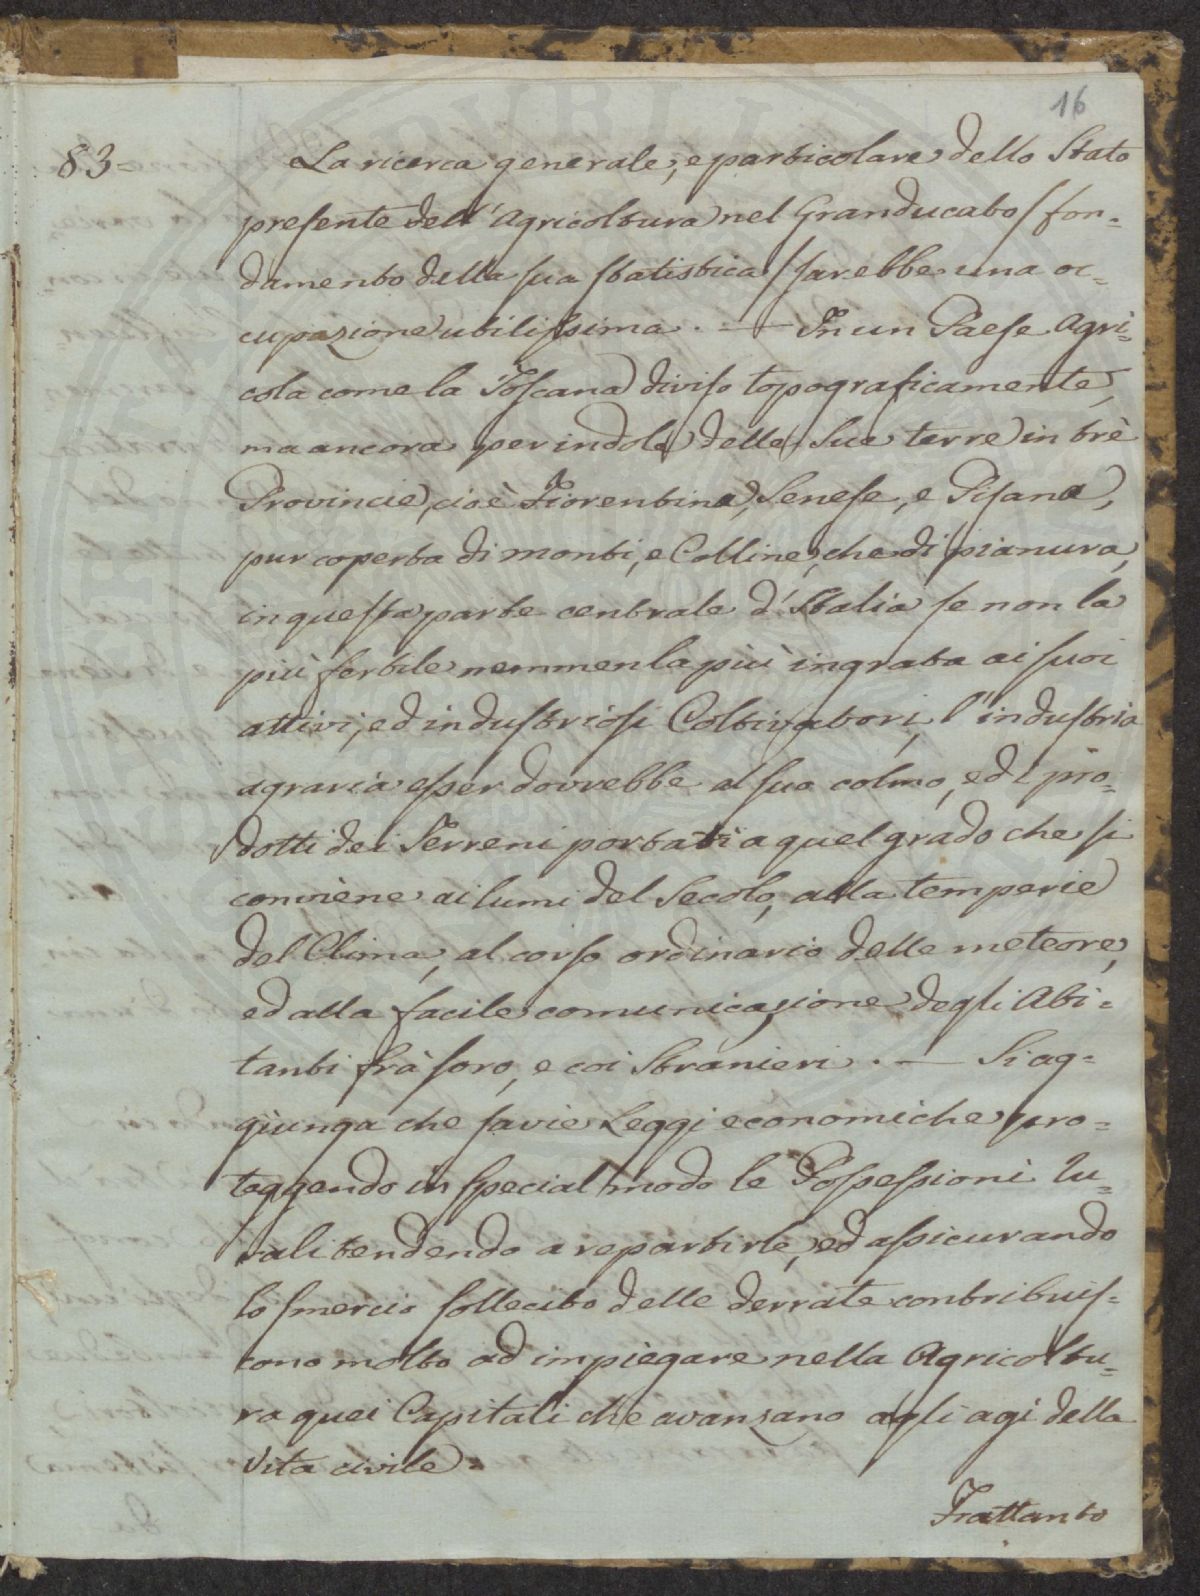 16
83=
La ricerca generale, e particolare dello Stato
presente dell'Agricoltura nel Granducato / fon=
damento della sua statistica / sarebbe una oc=
cupazione utilissima. — In un Paese Agri=
cola come la Toscana diviso topograficamente,
ma ancora per indole delle sue terre in trè
Provincie, cioè Fiorentina, Senese, e Pisana,
pur coperta di monti, e Colline, che di pianura,
in questa parte centrale d'Italia se non la
più fertile nemmen la più ingrata ai suoi
attivi, ed industriosi Coltivatori, l'industria
agraria esser dovrebbe al suo colmo, ed i pro=
dotti dei Terreni portati a quel grado che si
conviene ai lumi del Secolo, alla temperie
del Clima, al corso ordinario delle meteore,
ed alla facile comunicazione degli Abi=
tanti frà loro, e coi Stranieri. — Si ag=
giunga che savie Leggi economiche pro=
teggendo in special modo le Possessioni Ru=
rali tendendo a repartirle, ed assicurando
lo smercio sollecito delle derrate contribuis=
cono molto ad impiegare nella Agricoltu=
ra quei Capitali che avanzano agli agi della
vita civile =
Frattanto